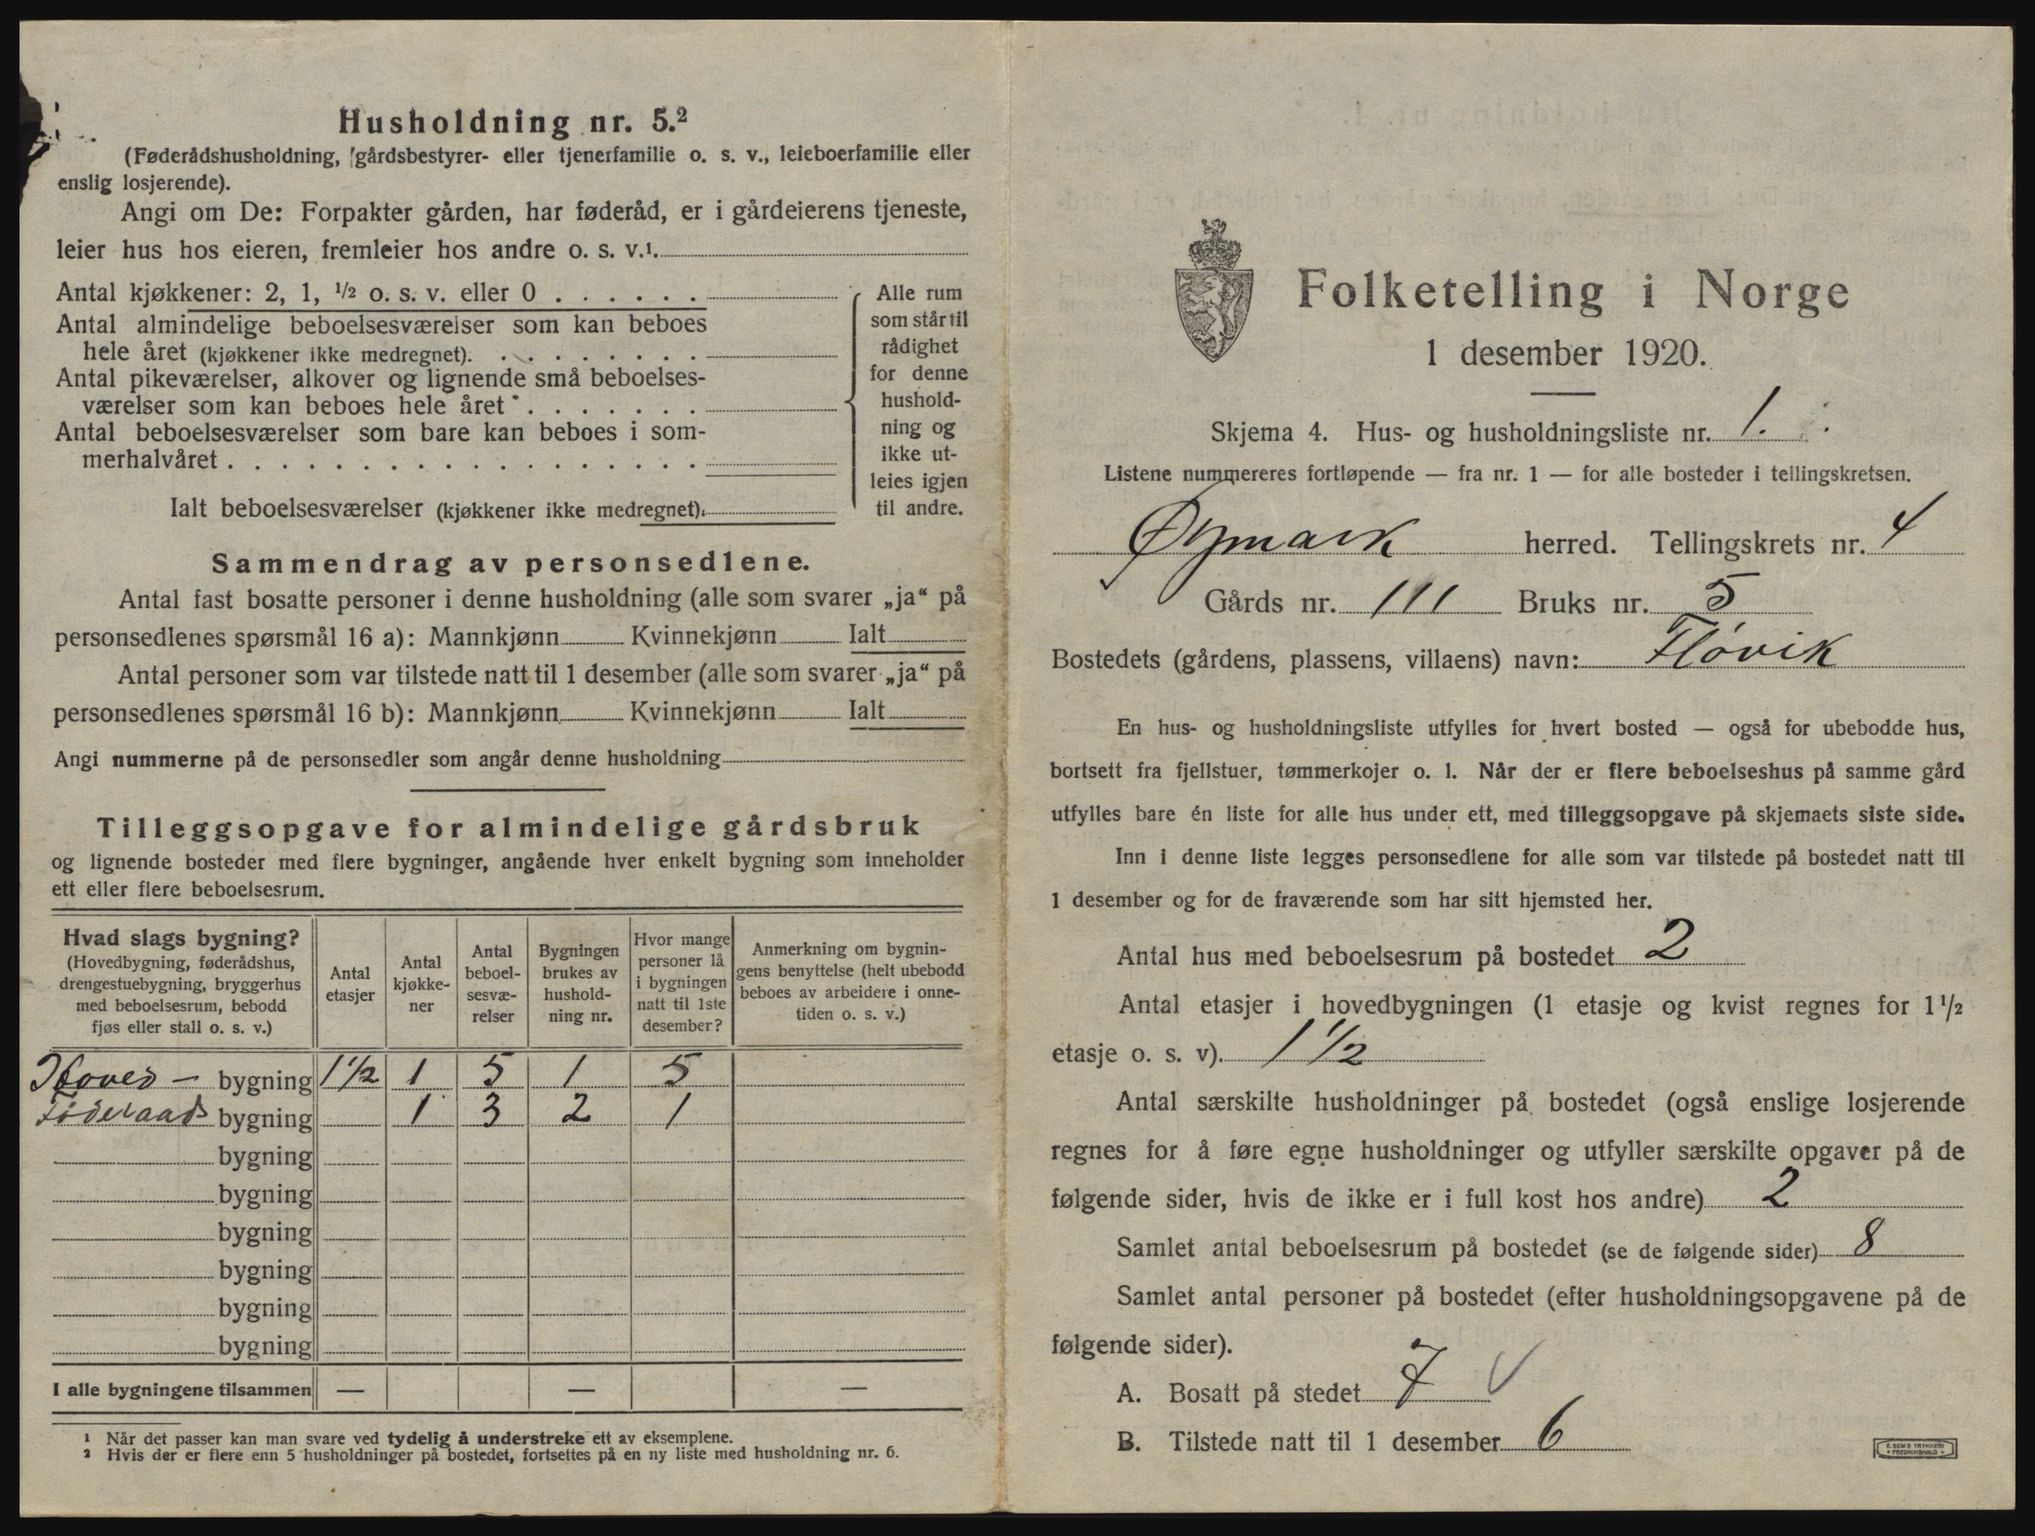 Husholdning nr. 5.²
(Føderådshusholdning, gårdsbestyrer- eller tjenerfamilie o. s. v., leieboerfamilie eller
enslig losjerende).
Angi om De: Forpakter gården, har føderåd, er i gårdeierens tjeneste,
leier hus hos eieren, fremleier hos andre o. s. v.¹.
Antal kjøkkener: 2, 1, ½ o. s. v. eller 0
Antal almindelige beboelsesværelser som kan beboes
hele året (kjøkkener ikke medregnet).
Antal pikeværelser, alkover og lignende små beboelses-
værelser som kan beboes hele året
Antal beboelsesværelser som bare kan beboes i som-
merhalvåret
Ialt beboelsesværelser (kjøkkener ikke medregnet).
Alle rum
som står til
rådighet
for denne
hushold-
ning og
ikke ut-
leies igjen
til andre.
Sammendrag av personsedlene.
Antal fast bosatte personer i denne husholdning (alle som svarer „ja“ på
personsedlenes spørsmål 16 a): Mannkjønn Kvinnekjønn Ialt
Antal personer som var tilstede natt til 1 desember (alle som svarer „ja“ på
personsedlenes spørsmål 16 b): Mannkjønn Kvinnekjønn Ialt
Angi nummerne på de personsedler som angår denne husholdning
Tilleggsopgave for almindelige gårdsbruk
og lignende bosteder med flere bygninger, angående hver enkelt bygning som inneholder
ett eller flere beboelsesrum.
Hvad slags bygning?
(Hovedbygning, føderådshus,
drengestuebygning, bryggerhus
med beboelsesrum, bebodd
fjøs eller stall o. s. v.)
Antal
etasjer
Antal
kjøkke-
ner
Antal
beboel-
sesvæ-
relser
Bygningen
brukes av
hushold-
ning nr.
Hvor mange
personer lå
i bygningen
natt til 1ste
desember?
Anmerkning om bygnin-
gens benyttelse (helt ubebodd
beboes av arbeidere i onne-
tiden o. s. v.)
Hoved – bygning 1½ 1 5 1 5
Føderaads bygning 1 3 2 1
bygning
bygning
bygning
bygning
bygning
bygning
I alle bygningene tilsammen — — —
¹ Når det passer kan man svare ved tydelig å understreke ett av eksemplene.
² Hvis der er flere enn 5 husholdninger på bostedet, fortsettes på en ny liste med husholdning nr. 6.
Folketelling i Norge
1 desember 1920.
Skjema 4. Hus- og husholdningsliste nr. 1.
Listene nummereres fortløpende — fra nr. 1 — for alle bosteder i tellingskretsen.
Øymark herred. Tellingskrets nr. 4
Gårds nr. 111 Bruks nr. 5
Bostedets (gårdens, plassens, villaens) navn: Fløvik
En hus- og husholdningsliste utfylles for hvert bosted — også for ubebodde hus,
bortsett fra fjellstuer, tømmerkojer o. l. Når der er flere beboelseshus på samme gård
utfylles bare én liste for alle hus under ett, med tilleggsopgave på skjemaets siste side.
Inn i denne liste legges personsedlene for alle som var tilstede på bostedet natt til
1 desember og for de fraværende som har sitt hjemsted her.
Antal hus med beboelsesrum på bostedet 2
Antal etasjer i hovedbygningen (1 etasje og kvist regnes for 1½
etasje o. s. v). 1½
Antal særskilte husholdninger på bostedet (også enslige losjerende
regnes for å føre egne husholdninger og utfyller særskilte opgaver på de
følgende sider, hvis de ikke er i full kost hos andre) 2
Samlet antal beboelsesrum på bostedet (se de følgende sider) 8
Samlet antal personer på bostedet (efter husholdningsopgavene på de
følgende sider).
A. Bosatt på stedet 7 √
B. Tilstede natt til 1 desember 6
E. SEM'S TRYKKERI
FREDRIKSHALD